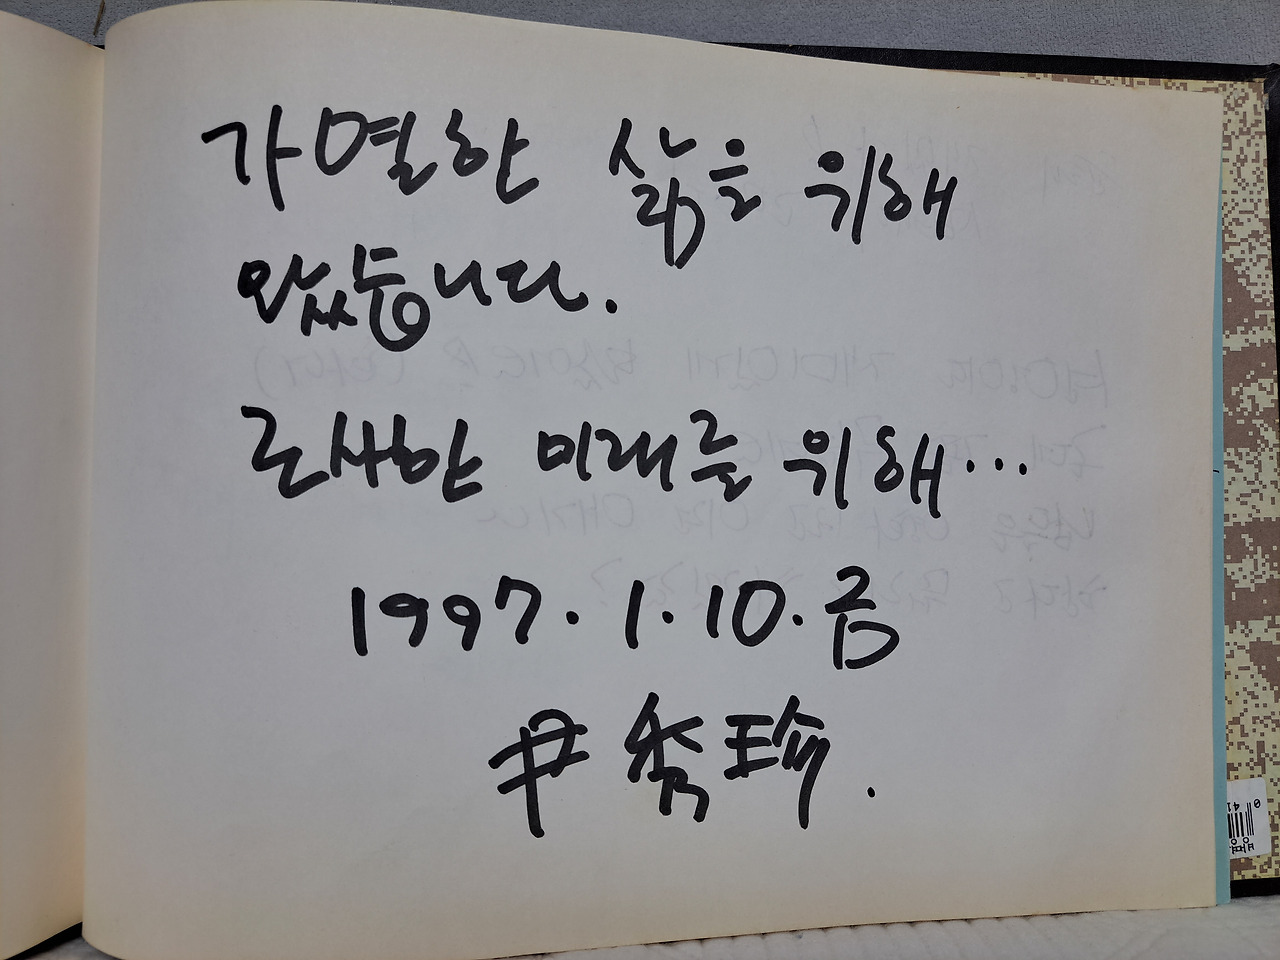 가열한 삶을 위해
왔습니다.
근사한 미래를 위해...
1997. 1. 10. 금
尹秀珍.